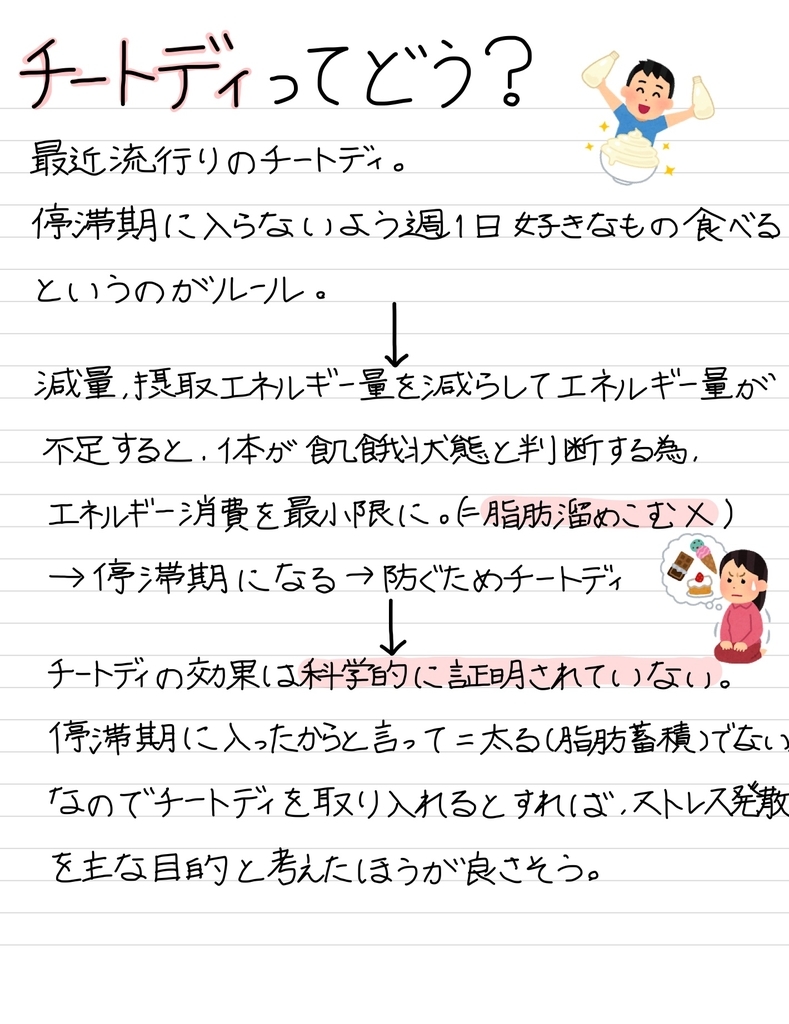 チートディってどう?
最近流行りのチートディ。
停滞期に入らないよう週1日好きなもの食べる
というのがルール。
↓
減量,摂取エネルギー量を減らしてエネルギー量が
不足すると,体が飢餓状態と判断する為,
エネルギー消費を最小限に。(=脂肪溜めこむ×)
→停滞期になる→防ぐためチートディ
↓
チートディの効果は科学的に証明されていない。
停滞期に入ったからと言って=太る(脂肪蓄積)でない
なのでチートディを取り入れるとすれば,ストレス発散
を主な目的と考えたほうが良さそう。